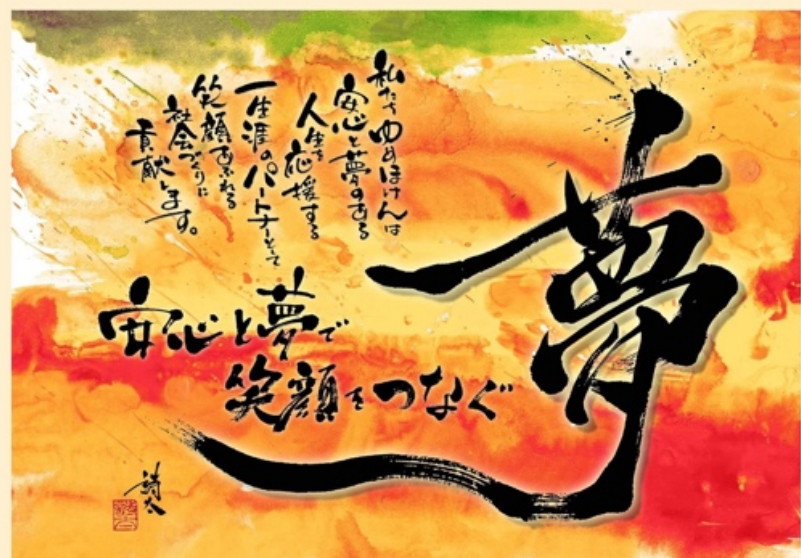 夢
私たちゆめほけんは
安心と夢のある
人生を応援する
一生涯のパートナーとして
笑顔あふれる
社会づくりに
貢献します。
安心と夢で
笑顔をつなぐ